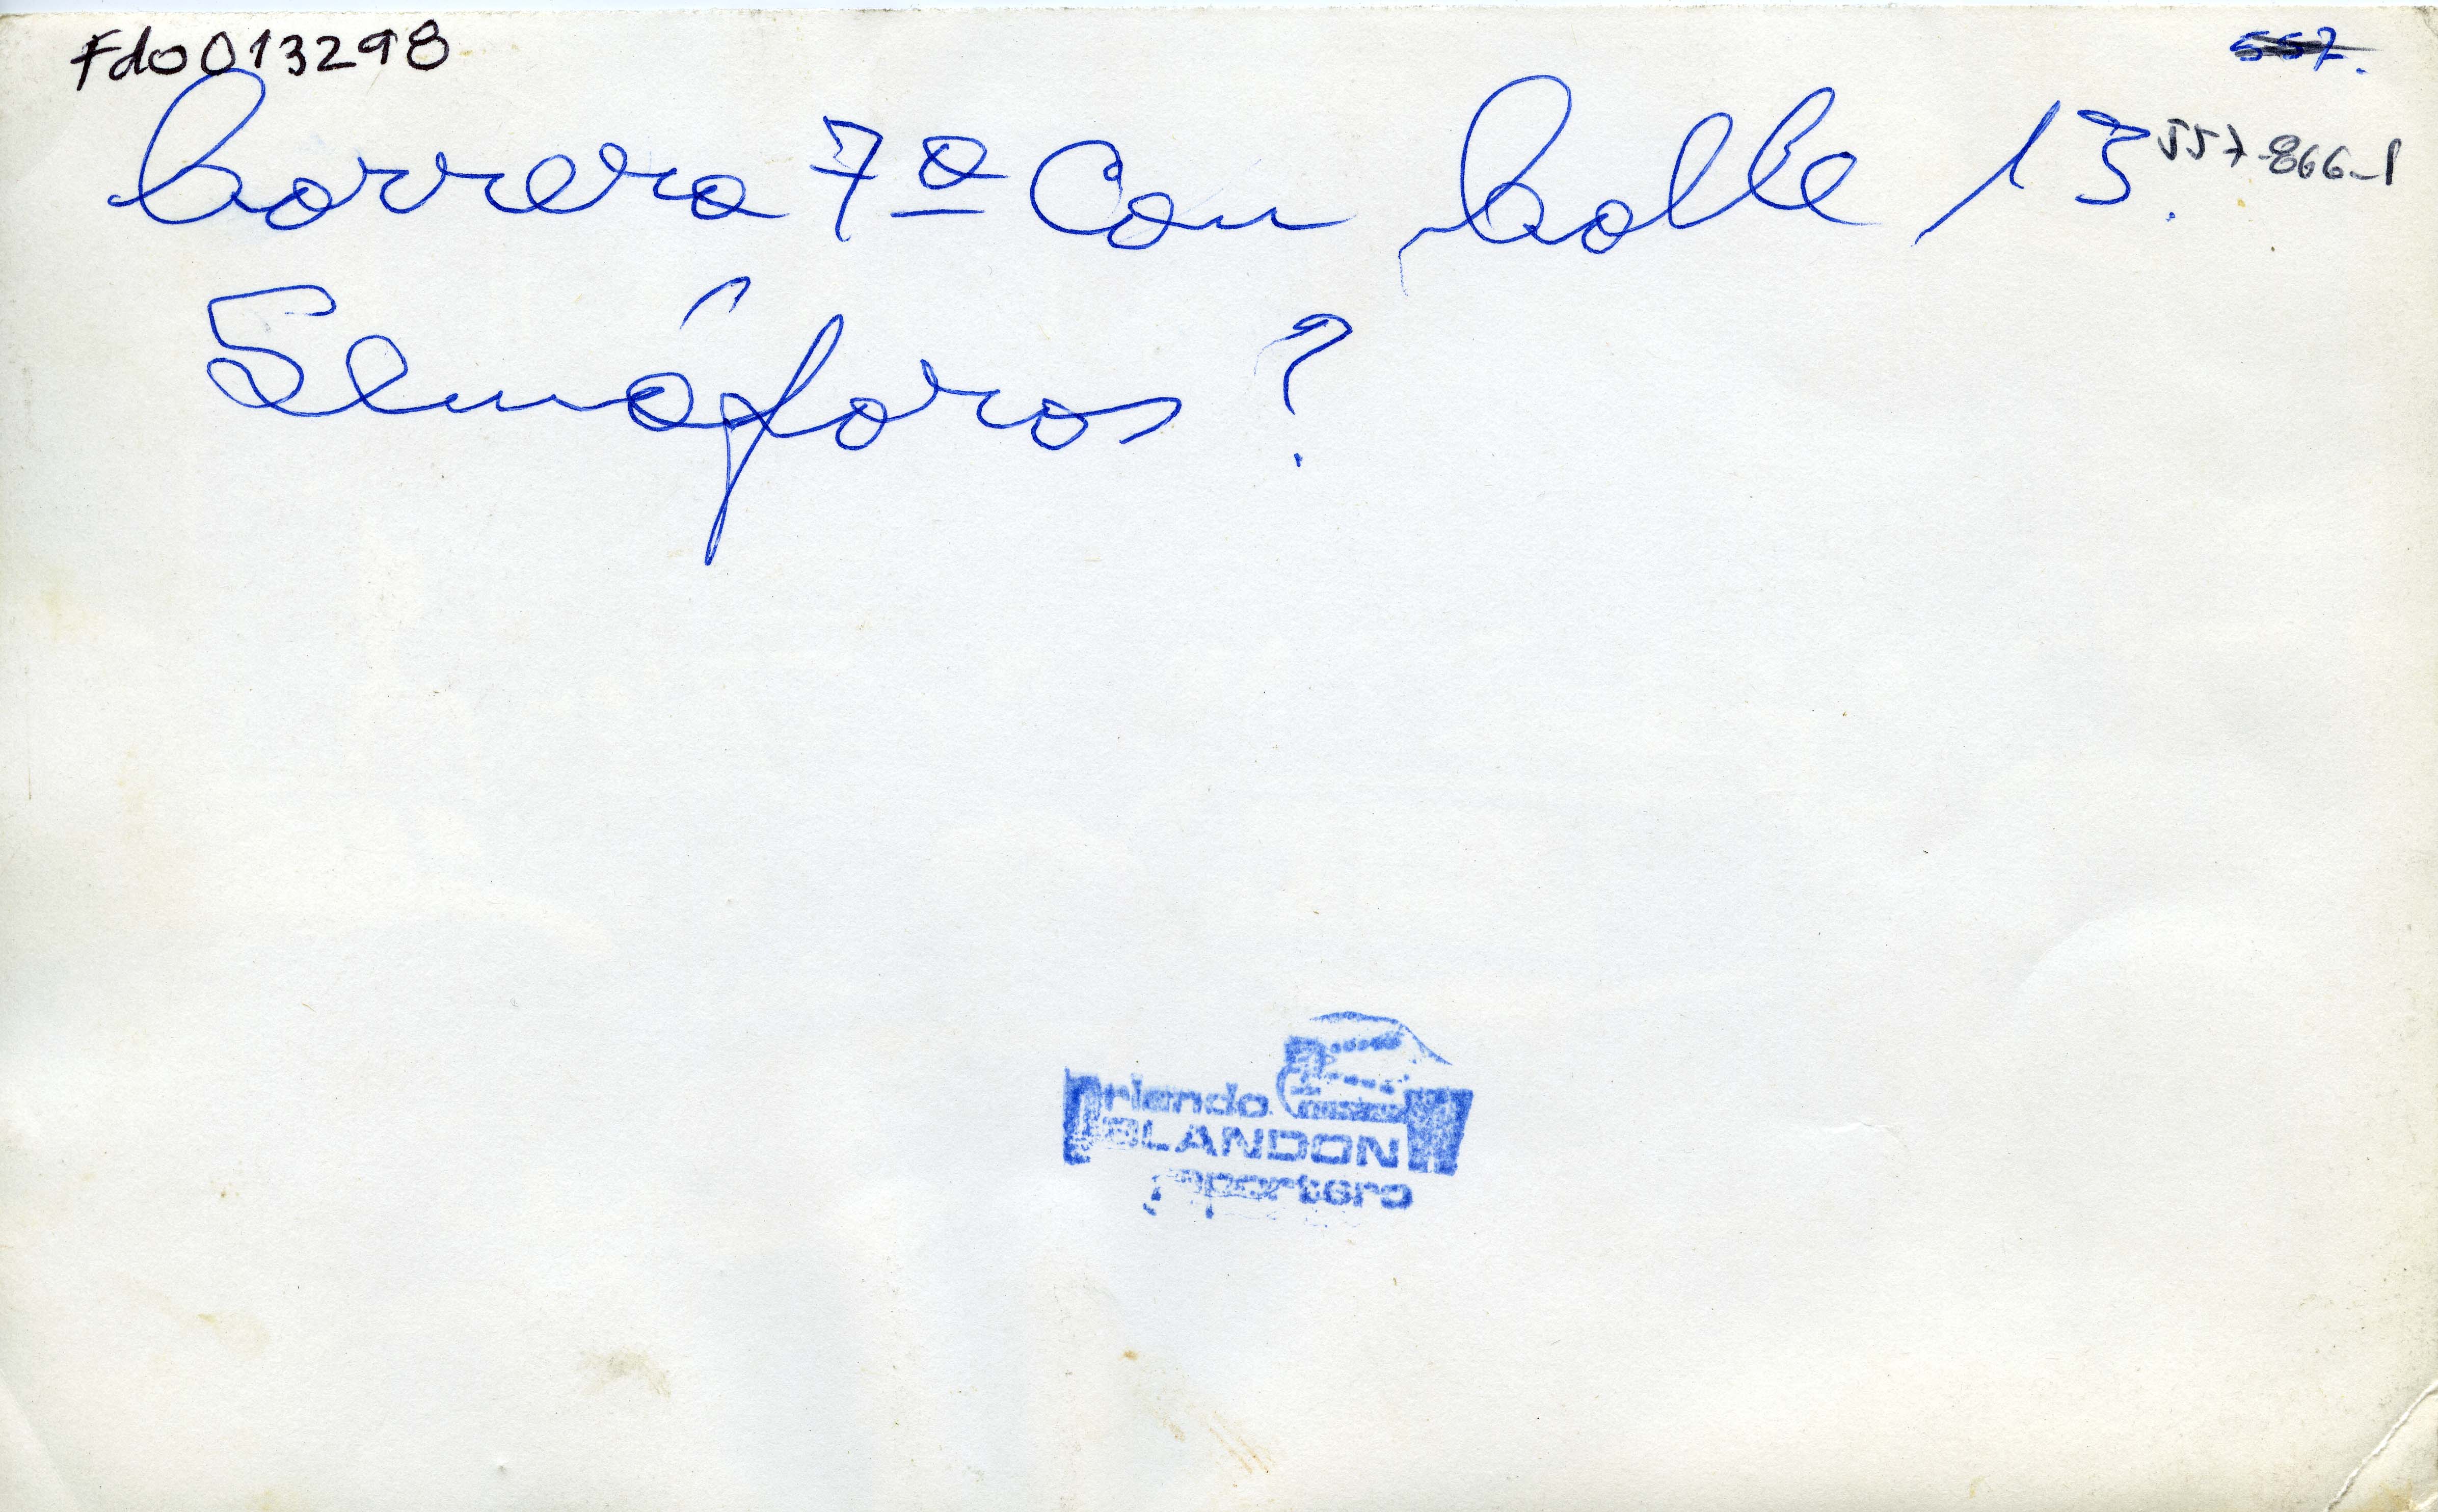 Fdo013298
557.
Carrera 7ª Con Calle 13.
557-866-1
Semáforos ?
Orlando
BLANDON
reportero